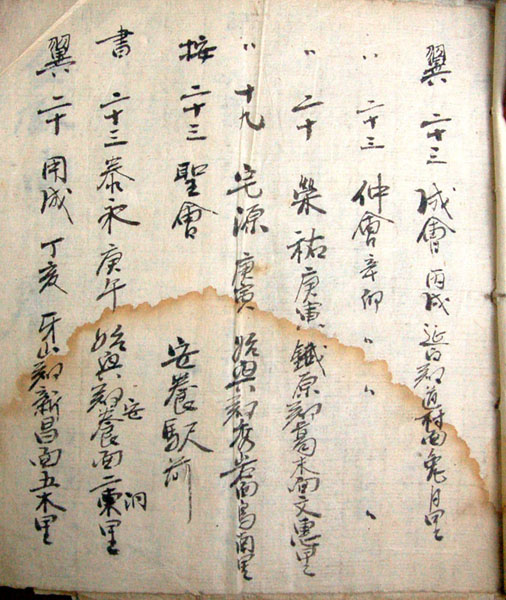 翼 二十三 成會 丙戌 延白郡道村面兎月里
〃 二十三 仲會 辛卯 〃 〃 〃
〃 二十 榮祐 庚寅 鐵原郡葛末面文惠里
〃 十九 宅源 庚寅 始興郡秀岩面鳥南里
按 二十三 聖會 安養駅前
書 二十三 泰永 庚午 始興郡安養面二東里 洞
翼 二十 用成 丁亥 牙山郡新昌面五木里